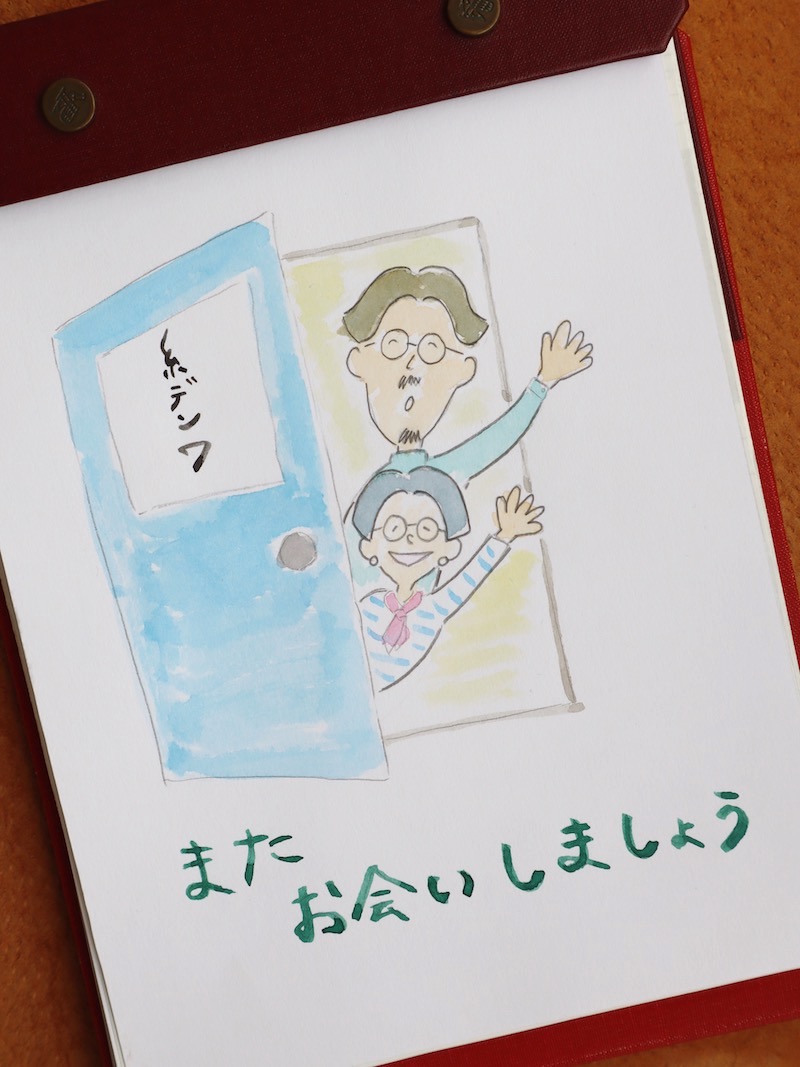 糸デンワ
また
お会いしましょう